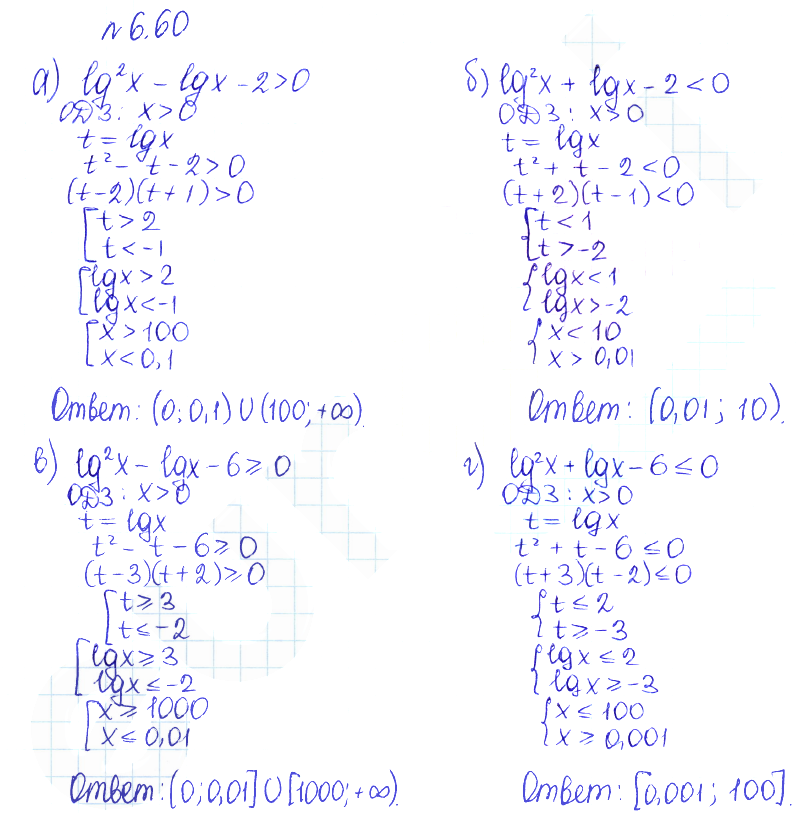 №6.60
а) lg²x - lgx - 2 > 0
ОДЗ: x > 0
t = lgx
t² - t - 2 > 0
(t-2)(t+1) > 0
[ t > 2
t < -1
[ lgx > 2
lgx < -1
[ x > 100
x < 0,1
Ответ: (0; 0,1) ∪ (100; +∞).
б) lg²x + lgx - 2 < 0
ОДЗ: x > 0
t = lgx
t² + t - 2 < 0
(t+2)(t-1) < 0
{ t < 1
t > -2
{ lgx < 1
lgx > -2
{ x < 10
x > 0,01
Ответ: (0,01; 10).
в) lg²x - lgx - 6 ≥ 0
ОДЗ: x > 0
t = lgx
t² - t - 6 ≥ 0
(t-3)(t+2) ≥ 0
[ t ≥ 3
t ≤ -2
[ lgx ≥ 3
lgx ≤ -2
[ x ≥ 1000
x ≤ 0,01
Ответ: (0; 0,01] ∪ [1000; +∞).
г) lg²x + lgx - 6 ≤ 0
ОДЗ: x > 0
t = lgx
t² + t - 6 ≤ 0
(t+3)(t-2) ≤ 0
{ t ≤ 2
t ≥ -3
{ lgx ≤ 2
lgx ≥ -3
{ x ≤ 100
x ≥ 0,001
Ответ: [0,001; 100].